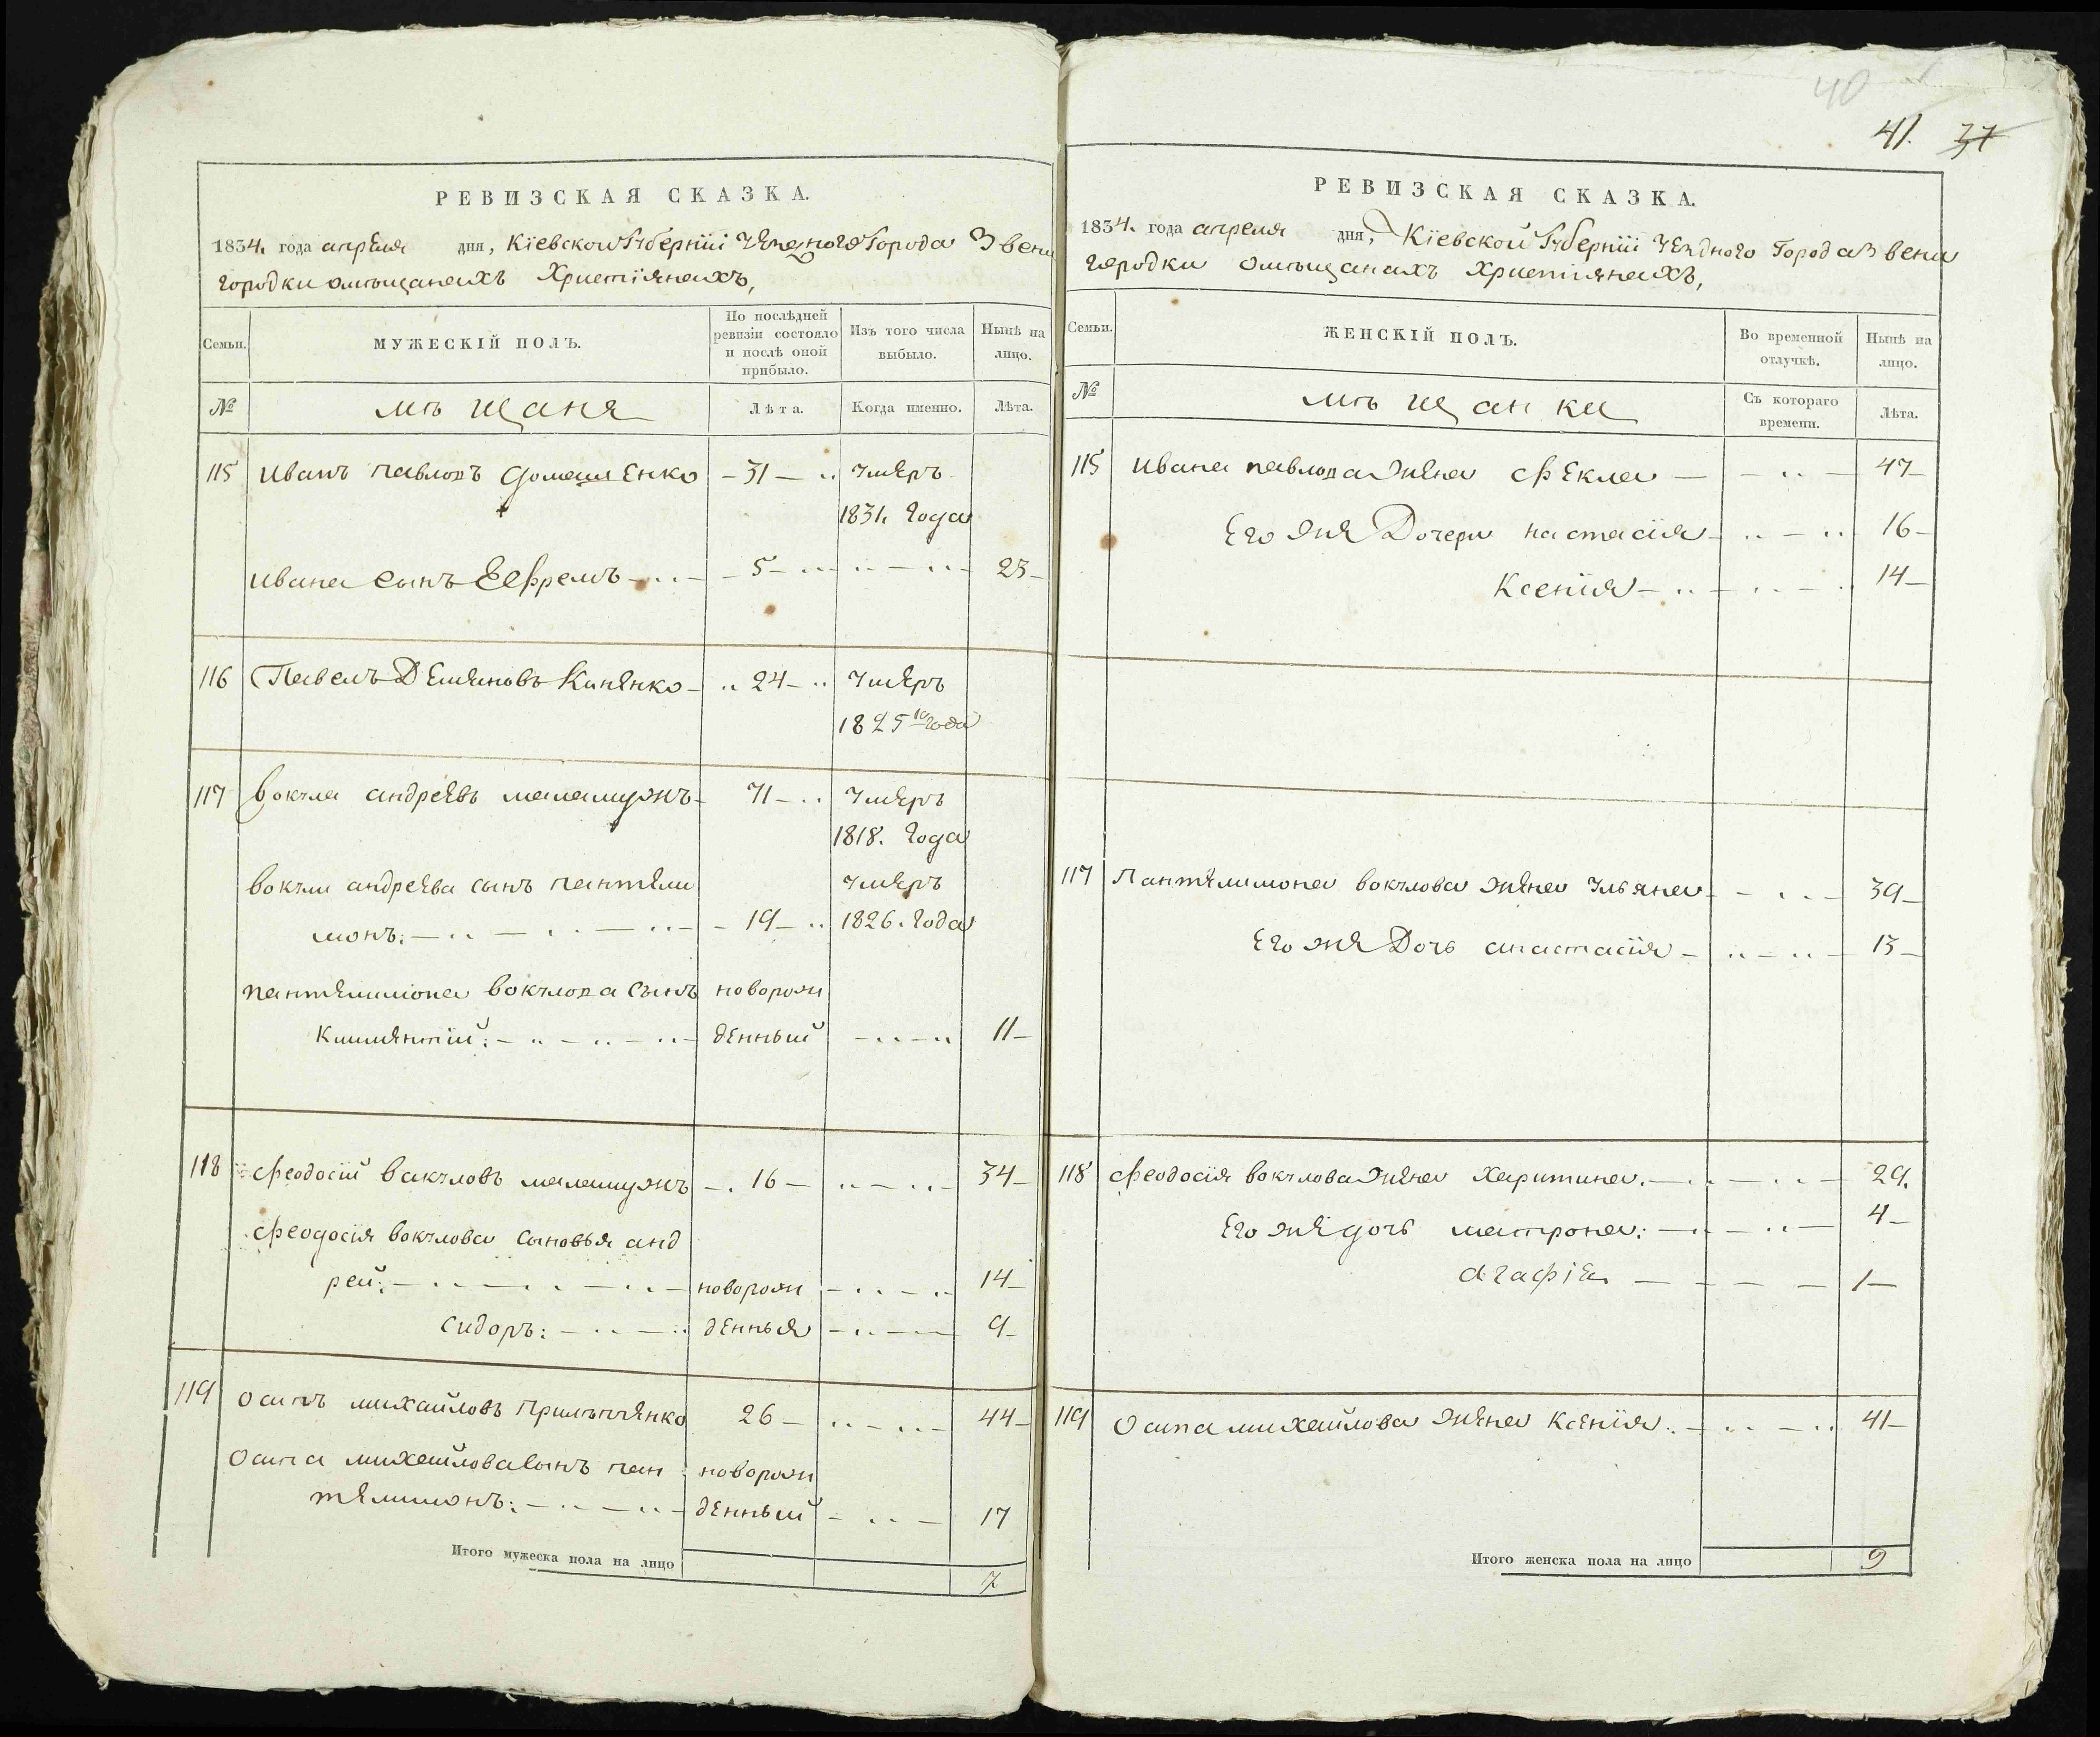 РЕВИЗСКАЯ СКАЗКА.
1834. года апреля дня, Кіевской Губерніи Уезного Города Звени
городки омѣщанахъ Христіянахъ,
Семьи.
МУЖЕСКІЙ ПОЛЪ.
По послѣдней ревизіи состояло и послѣ оной прибыло.
Изъ того числа выбыло.
Нынѣ на лицо.
№ мѣщаня Лѣта. Когда именно. Лѣта.
115 Иванъ павловъ Домашенко — 31 — умеръ
1831. Года
Ивана сынъ Ефремъ — 5 — 23
116 Павелъ Демяновъ — 24 — умеръ
1825го года
117 Вокула андреевъ маламужъ — 71 — умеръ
1818. Года
вокули андреева сынъ пантели умеръ
монъ: — 19 — 1826. Года
пантелимона вокулова сынъ новорож
Климентій: — денный — 11
118 Феодосій вакуловъ маламужъ — 16 — 34
Феодосія вокулова сыновья анд
рей: — новорож — 14
сидоръ: — денныя — 9
119 Осипъ михайловъ 26 — 44
Осипа михайлова сынъ пан новорож
телимонъ: — денный — 17
Итого мужеска пола на лицо 7
40
41. 37
РЕВИЗСКАЯ СКАЗКА.
1834. года апреля дня, Кіевской Губерніи Уездного Города Звени
городки омѣщанахъ Христіянахъ,
Семьи.
ЖЕНСКІЙ ПОЛЪ.
Во временной отлучкѣ.
Нынѣ на лицо.
№ мѣщанки Съ котораго времени. Лѣта.
115 Ивана павлова жена Фекла — 47
Его же Дочери настасія — 16
Ксенія — 14
117 Пантелимона вокулова жена Ульяна — 39
Его же Дочь анастасія — 13
118 Феодосія вокулова жена Харитина. — 29.
Его же дочь матрона: — 4
агафія — 1
119 Осипа михайлова жена Ксенія: — 41
Итого женска пола на лицо 9